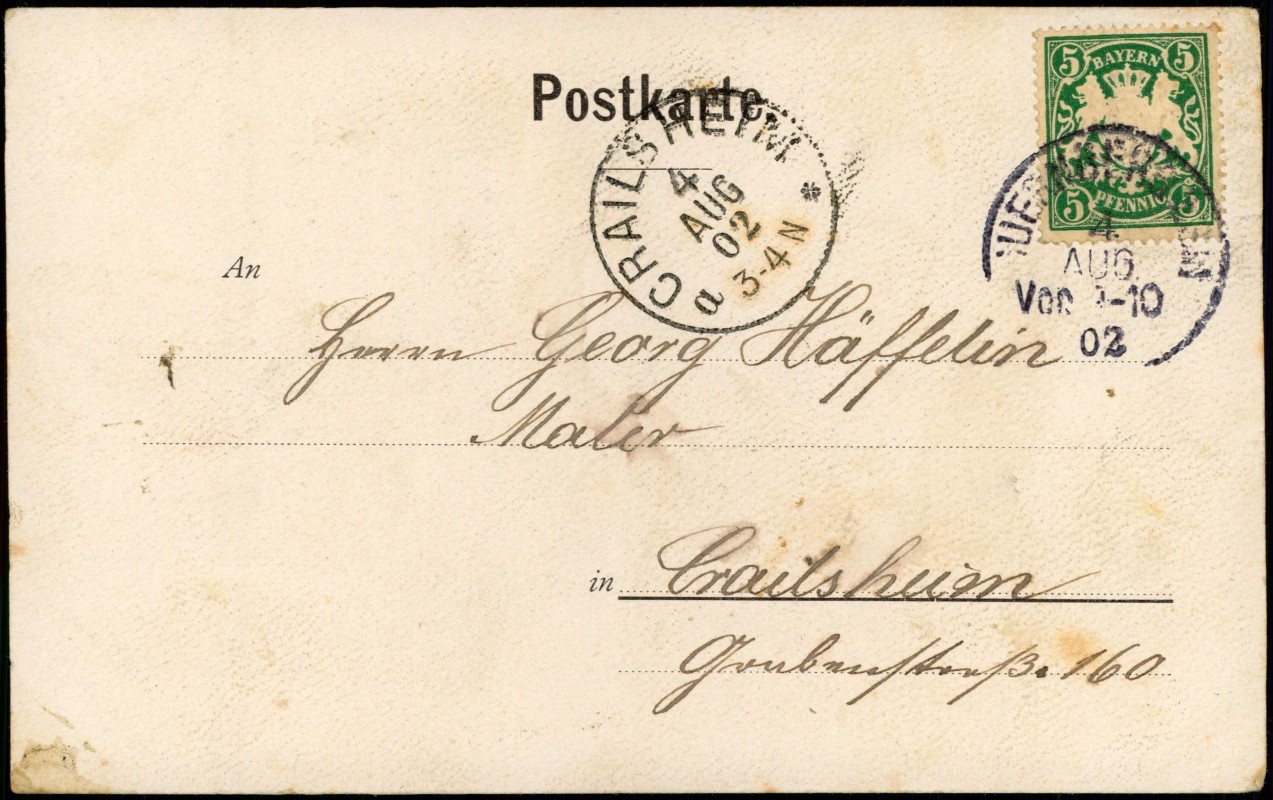 Postkarte
5 BAYERN 5
5 PFENNIG 5
CRAILSHEIM *
4
AUG
02
3-4 N
a
4.
AUG.
-10
02
An
Herrn Georg Häffelin
Maler
in Crailsheim
Grabenstraße 160